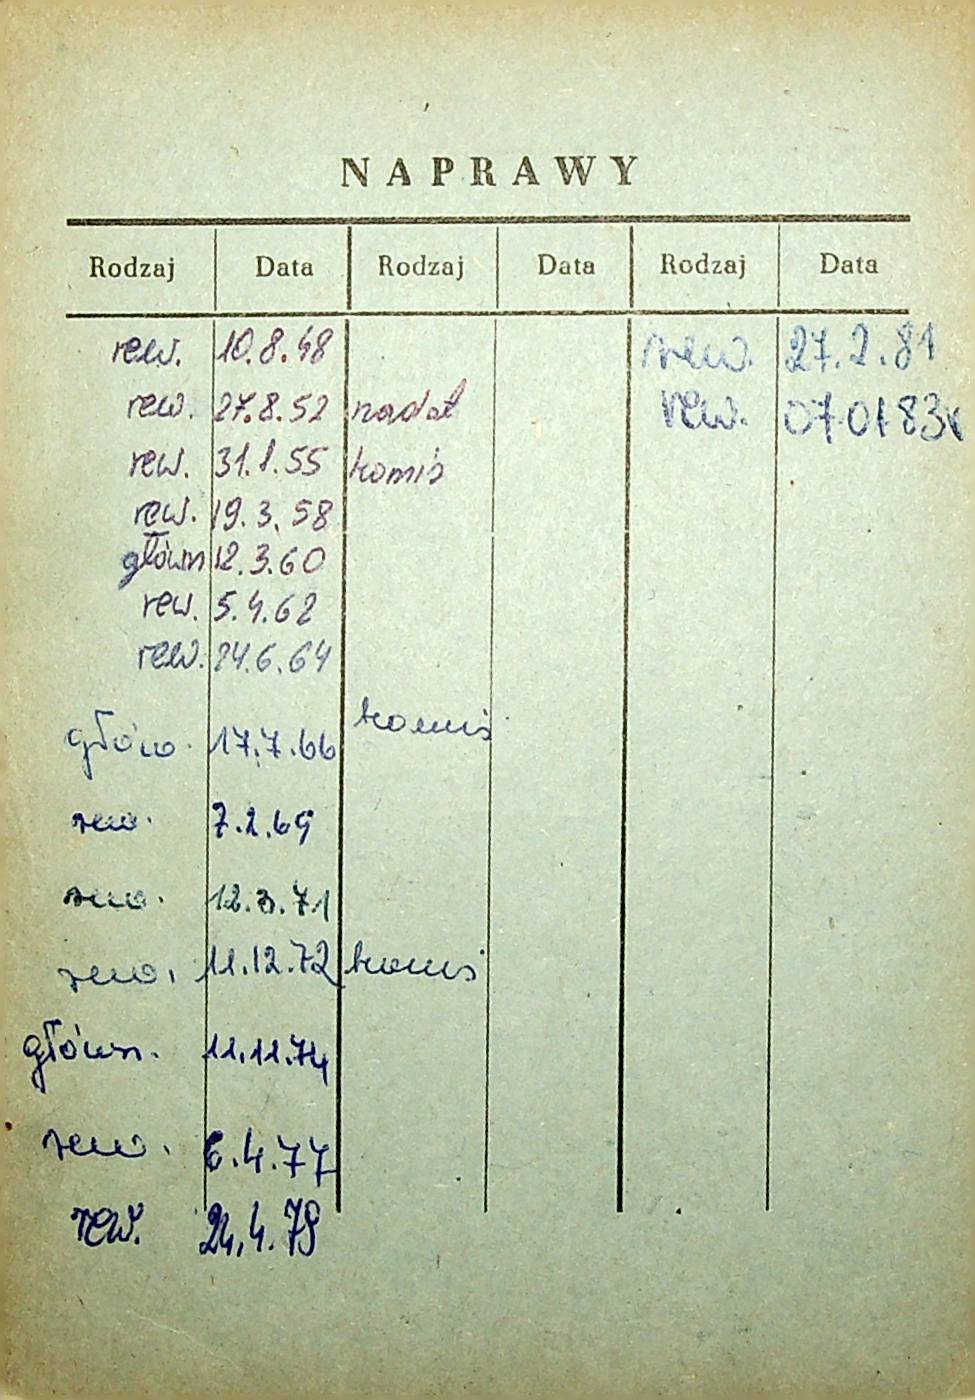 NAPRAWY
Rodzaj Data Rodzaj Data Rodzaj Data
rew. 10.8.48 rew. 27.2.81
rew. 27.8.52 nadal rew. 07.01.83r
rew. 31.1.55 komis
rew. 19.3.58
główn 12.3.60
rew. 5.4.62
rew. 24.6.64
główn. 17.7.66 komis
rew. 7.2.69
rew. 12.3.71
rew. 11.12.72 komis
główn. 11.11.74
rew. 6.4.77
rew. 24.4.79